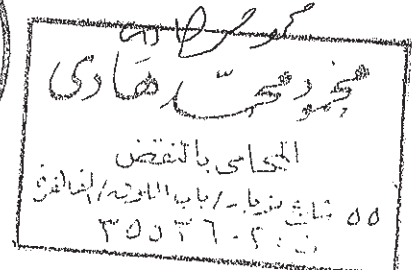 محمود محمد هادى
المحامى بالنقض
٥٥ شارع / باب اللوق / القاهرة
ت : ٣٥٥٣٦٠٢